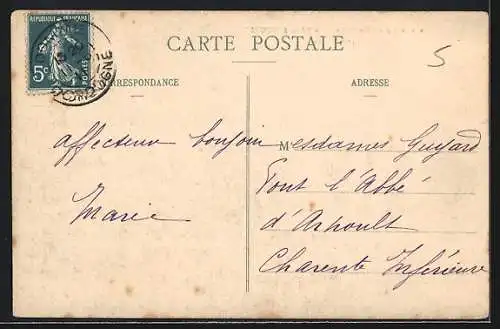 RÉPUBLIQUE FRANÇAISE
5c
POSTES
DORDOGNE
CARTE POSTALE
5
CORRESPONDANCE
ADRESSE
Affectueux bonjour
Marie
Mesdames Guyard
Pont l'Abbé
d'Arnoult
Charente Inférieure